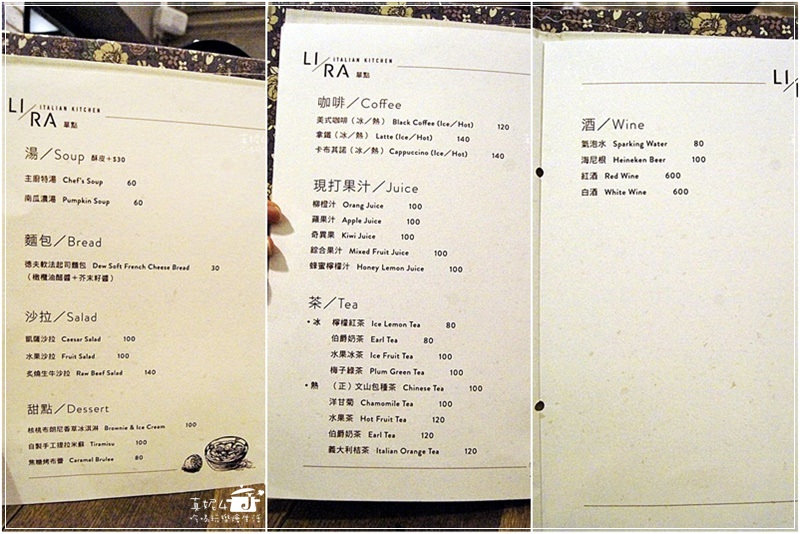 LI/RA ITALIAN KITCHEN
單點
湯／Soup 酥皮+$30
主廚特湯 Chef's Soup 60
南瓜濃湯 Pumpkin Soup 60
麵包／Bread
德夫軟法起司麵包 Dew Soft French Cheese Bread 30
（橄欖油醋醬＋芥末籽醬）
沙拉／Salad
凱薩沙拉 Caesar Salad 100
水果沙拉 Fruit Salad 100
炙燒生牛沙拉 Raw Beef Salad 140
甜點／Dessert
核桃布朗尼香草冰淇淋 Brownie & Ice Cream 100
自製手工提拉米蘇 Tiramisu 100
焦糖烤布蕾 Caramel Brulee 80
LI/RA ITALIAN KITCHEN
單點
咖啡／Coffee
美式咖啡（冰／熱） Black Coffee (Ice/Hot) 120
拿鐵（冰／熱） Latte (Ice/Hot) 140
卡布其諾（冰／熱） Cappuccino (Ice/Hot) 140
現打果汁／Juice
柳橙汁 Orang Juice 100
蘋果汁 Apple Juice 100
奇異果 Kiwi Juice 100
綜合果汁 Mixed Fruit Juice 100
蜂蜜檸檬汁 Honey Lemon Juice 100
茶／Tea
•冰 檸檬紅茶 Ice Lemon Tea 80
伯爵奶茶 Earl Tea 80
水果冰茶 Ice Fruit Tea 100
梅子綠茶 Plum Green Tea 100
•熱 （正）文山包種茶 Chinese Tea 100
洋甘菊 Chamomile Tea 100
水果茶 Hot Fruit Tea 120
伯爵奶茶 Earl Tea 120
義大利桔茶 Italian Orange Tea 120
LI
酒／Wine
氣泡水 Sparking Water 80
海尼根 Heineken Beer 100
紅酒 Red Wine 600
白酒 White Wine 600
真妮4
吃喝玩樂瘋生活